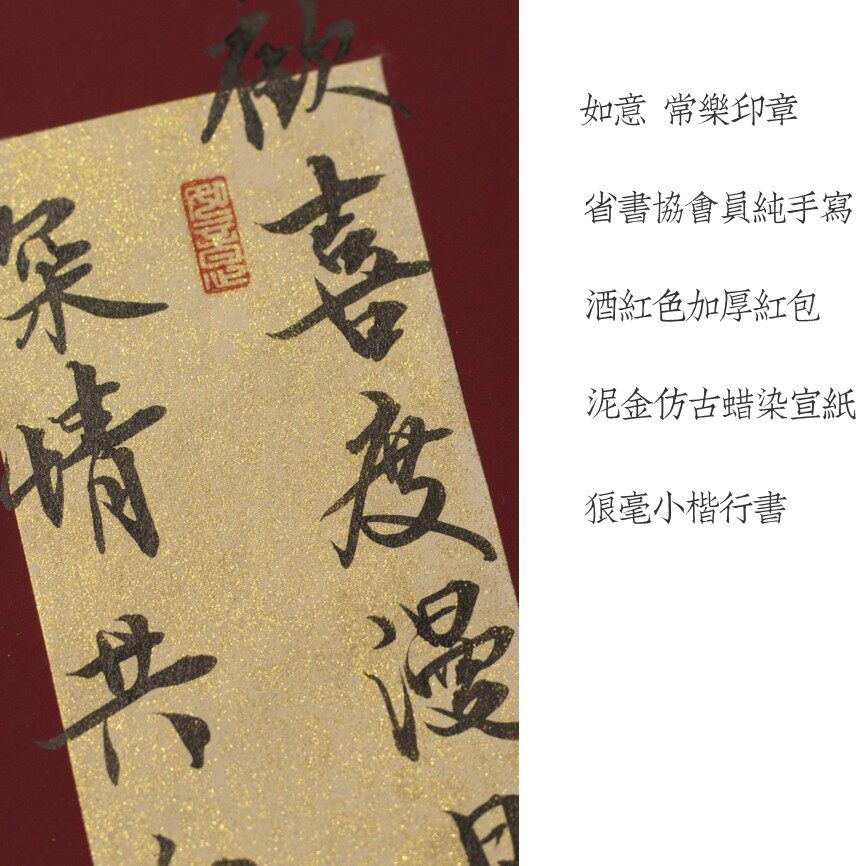 歡喜度漫
深情共
如意 常樂印章
省書協會員純手寫
酒紅色加厚紅包
泥金仿古蜡染宣紙
狼毫小楷行書